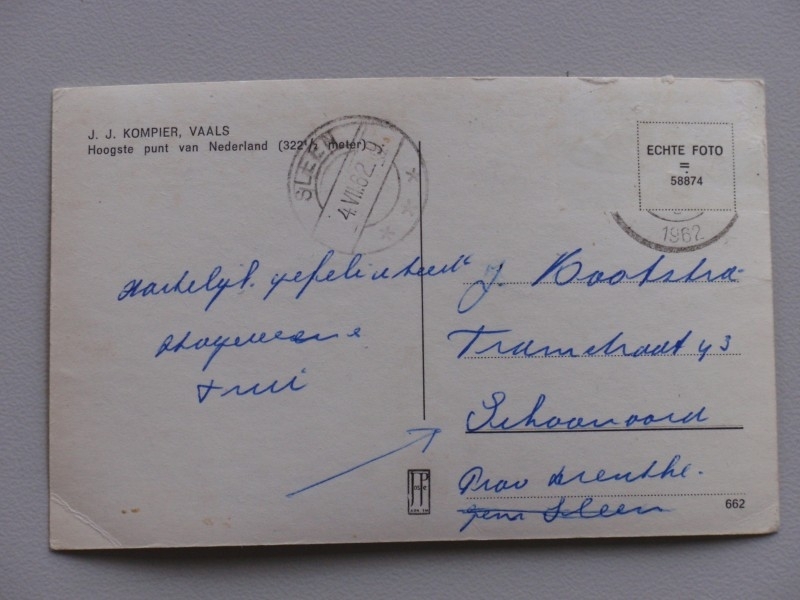 J. J. KOMPIER, VAALS
Hoogste punt van Nederland (322½ meter)
SLEEN
4.VII.62.-9
ECHTE FOTO
=
58874
1962
Hartelijk gefeliciteerd
J. Kootstra
Tramstraat 43
Schoonoord
Prov Drenthe.
gem Sleen
JP
662